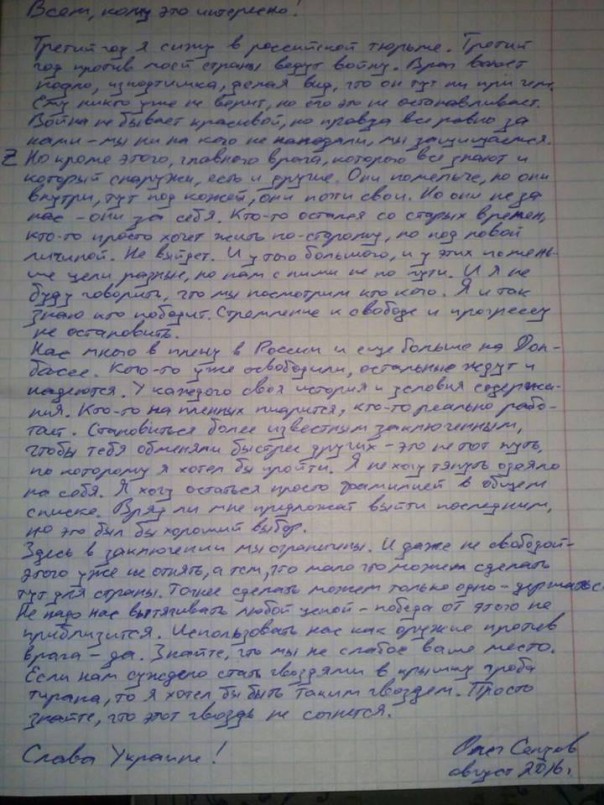 Всем, кому это интересно!
Третий год я сижу в российской тюрьме. Третий
год против моей страны ведут войну. Враг воюет
подло, изподтишка, делая вид, что он тут ни при чем.
Ему никто уже не верит, но его это не останавливает.
Война не бывает красивой, но правда все равно за
нами – мы ни на кого не нападали, мы защищаемся.
Z Но кроме этого, главного врага, которого все знают и
который снаружи, есть и другие. Они помельче, но они
внутри, тут под кожей, они почти свои. Но они не за
нас – они за себя. Кто-то остался со старых времен,
кто-то просто хочет жить по-старому, но под новой
личиной. Не выйдет. И у того большого, и у этих помень-
ше цели разные, но нам с ними не по пути. И я не
буду говорить, что мы посмотрим кто кого. Я и так
знаю кто победит. Стремление к свободе и прогрессу
не остановить.
Нас много в плену в России и еще больше на Дон-
бассе. Кого-то уже освободили, остальные ждут и
надеются. У каждого своя история и условия содержа-
ния. Кто-то на пленных пиарится, кто-то реально рабо-
тает. Становиться более известным заключенным,
чтобы тебя обменяли быстрее других – это не тот путь,
по которому я хотел бы пройти. Я не хочу тянуть одеяло
на себя. Я хочу остаться просто фамилией в общем
списке. Вряд ли мне предложат выйти последним,
но это был бы хороший выбор.
Здесь в заключении мы ограничены. И даже не свободой –
этого уже не отнять, а тем, что мало что можем сделать
тут для страны. Точнее сделать можем только одно – держаться.
Не надо нас вытягивать любой ценой – победа от этого не
приблизится. Использовать нас как оружие против
врага – да. Знайте, что мы не слабое ваше место.
Если нам суждено стать гвоздями в крышку гроба
тирана, то я хотел бы быть таким гвоздем. Просто
знайте, что этот гвоздь не согнется.
Слава Украине!
Олег Сенцов
август 2016 г